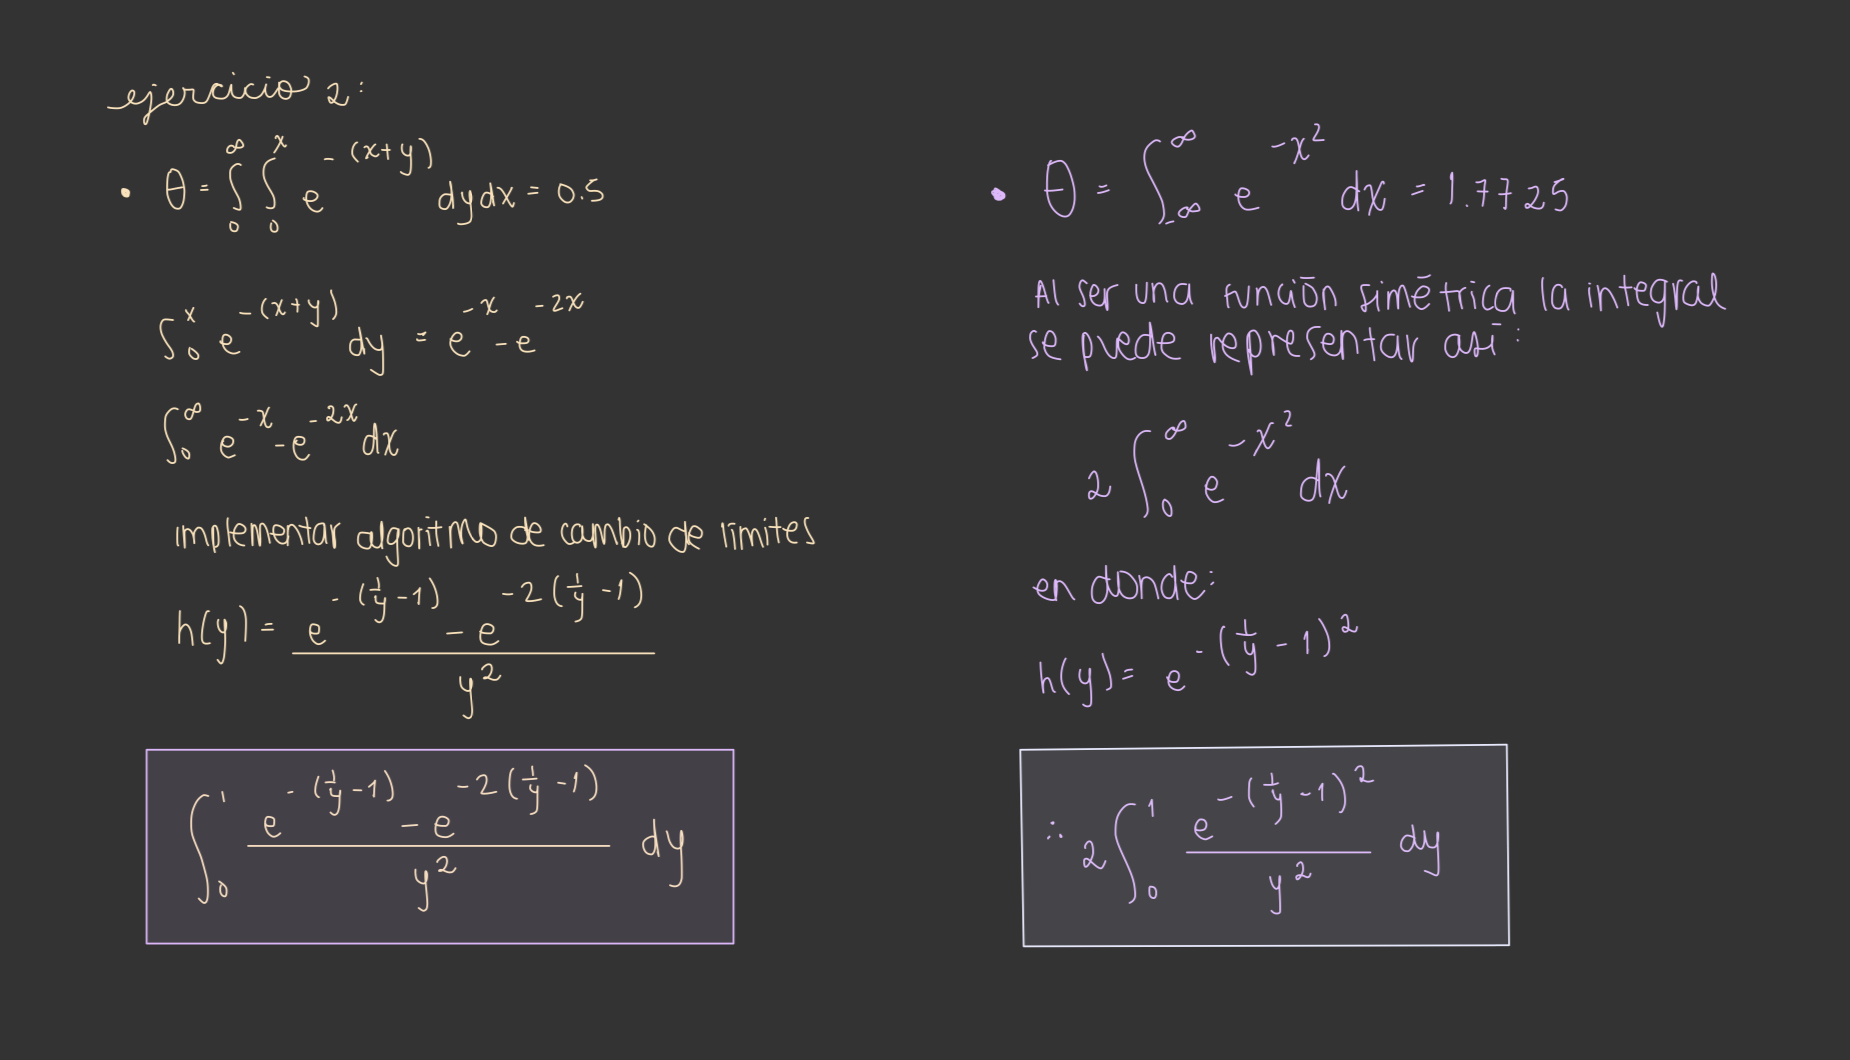 ejercicio 2:
• θ = ∫₀^∞ ∫₀^x e^{-(x+y)} dydx = 0.5
∫₀^x e^{-(x+y)} dy = e^{-x} - e^{-2x}
∫₀^∞ e^{-x} - e^{-2x} dx
implementar algoritmo de cambio de límites
h(y) = \frac{e^{-(\frac{1}{y}-1)} - e^{-2(\frac{1}{y}-1)}}{y^2}
∫₀^1 \frac{e^{-(\frac{1}{y}-1)} - e^{-2(\frac{1}{y}-1)}}{y^2} dy
• θ = ∫_{-∞}^∞ e^{-x^2} dx = 1.7725
Al ser una función simétrica la integral
se puede representar así:
2 ∫₀^∞ e^{-x^2} dx
en donde:
h(y) = e^{-(\frac{1}{y}-1)^2}
∴ 2 ∫₀^1 \frac{e^{-(\frac{1}{y}-1)^2}}{y^2} dy